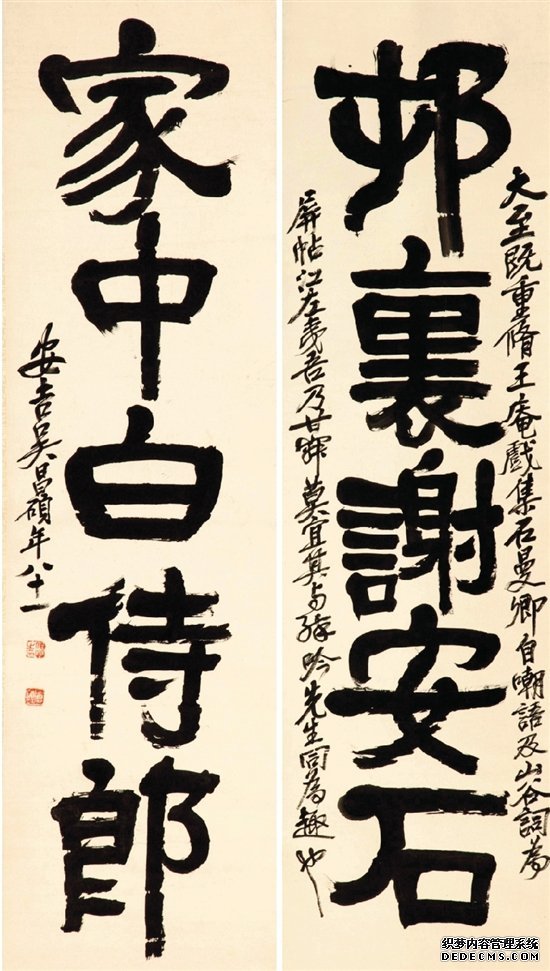 邨裏謝安石
大至既重脩王庵戲集石曼卿自嘲語及山谷詞為
屏帖江左
吾乃甘
莫宜
先生同為趣也
家中白侍郎
安吉吳昌碩年八十一
织梦内容管理系统
DEDECMS.COM